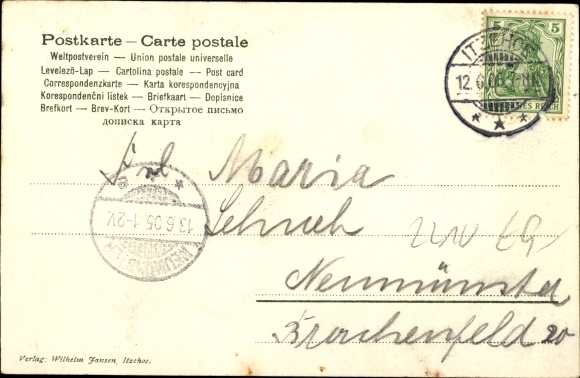 Postkarte — Carte postale
Weltpostverein — Union postale universelle
Levelező-Lap — Cartolina postale — Post card
Correspondenzkarte — Karta korespondencyjna
Korespondenční listek — Briefkaart — Dopisnice
Brefkort — Brev-Kort — Открытое письмо
дописка карта
5 5
ITZEHOE
12.6.05
REICH
Frl. Maria
Schueh
Neumünster
Brachenfeld 20
13.6.05.1-2V.
NEUMÜNSTER
Verlag: Wilhelm Jansen, Itzehoe.